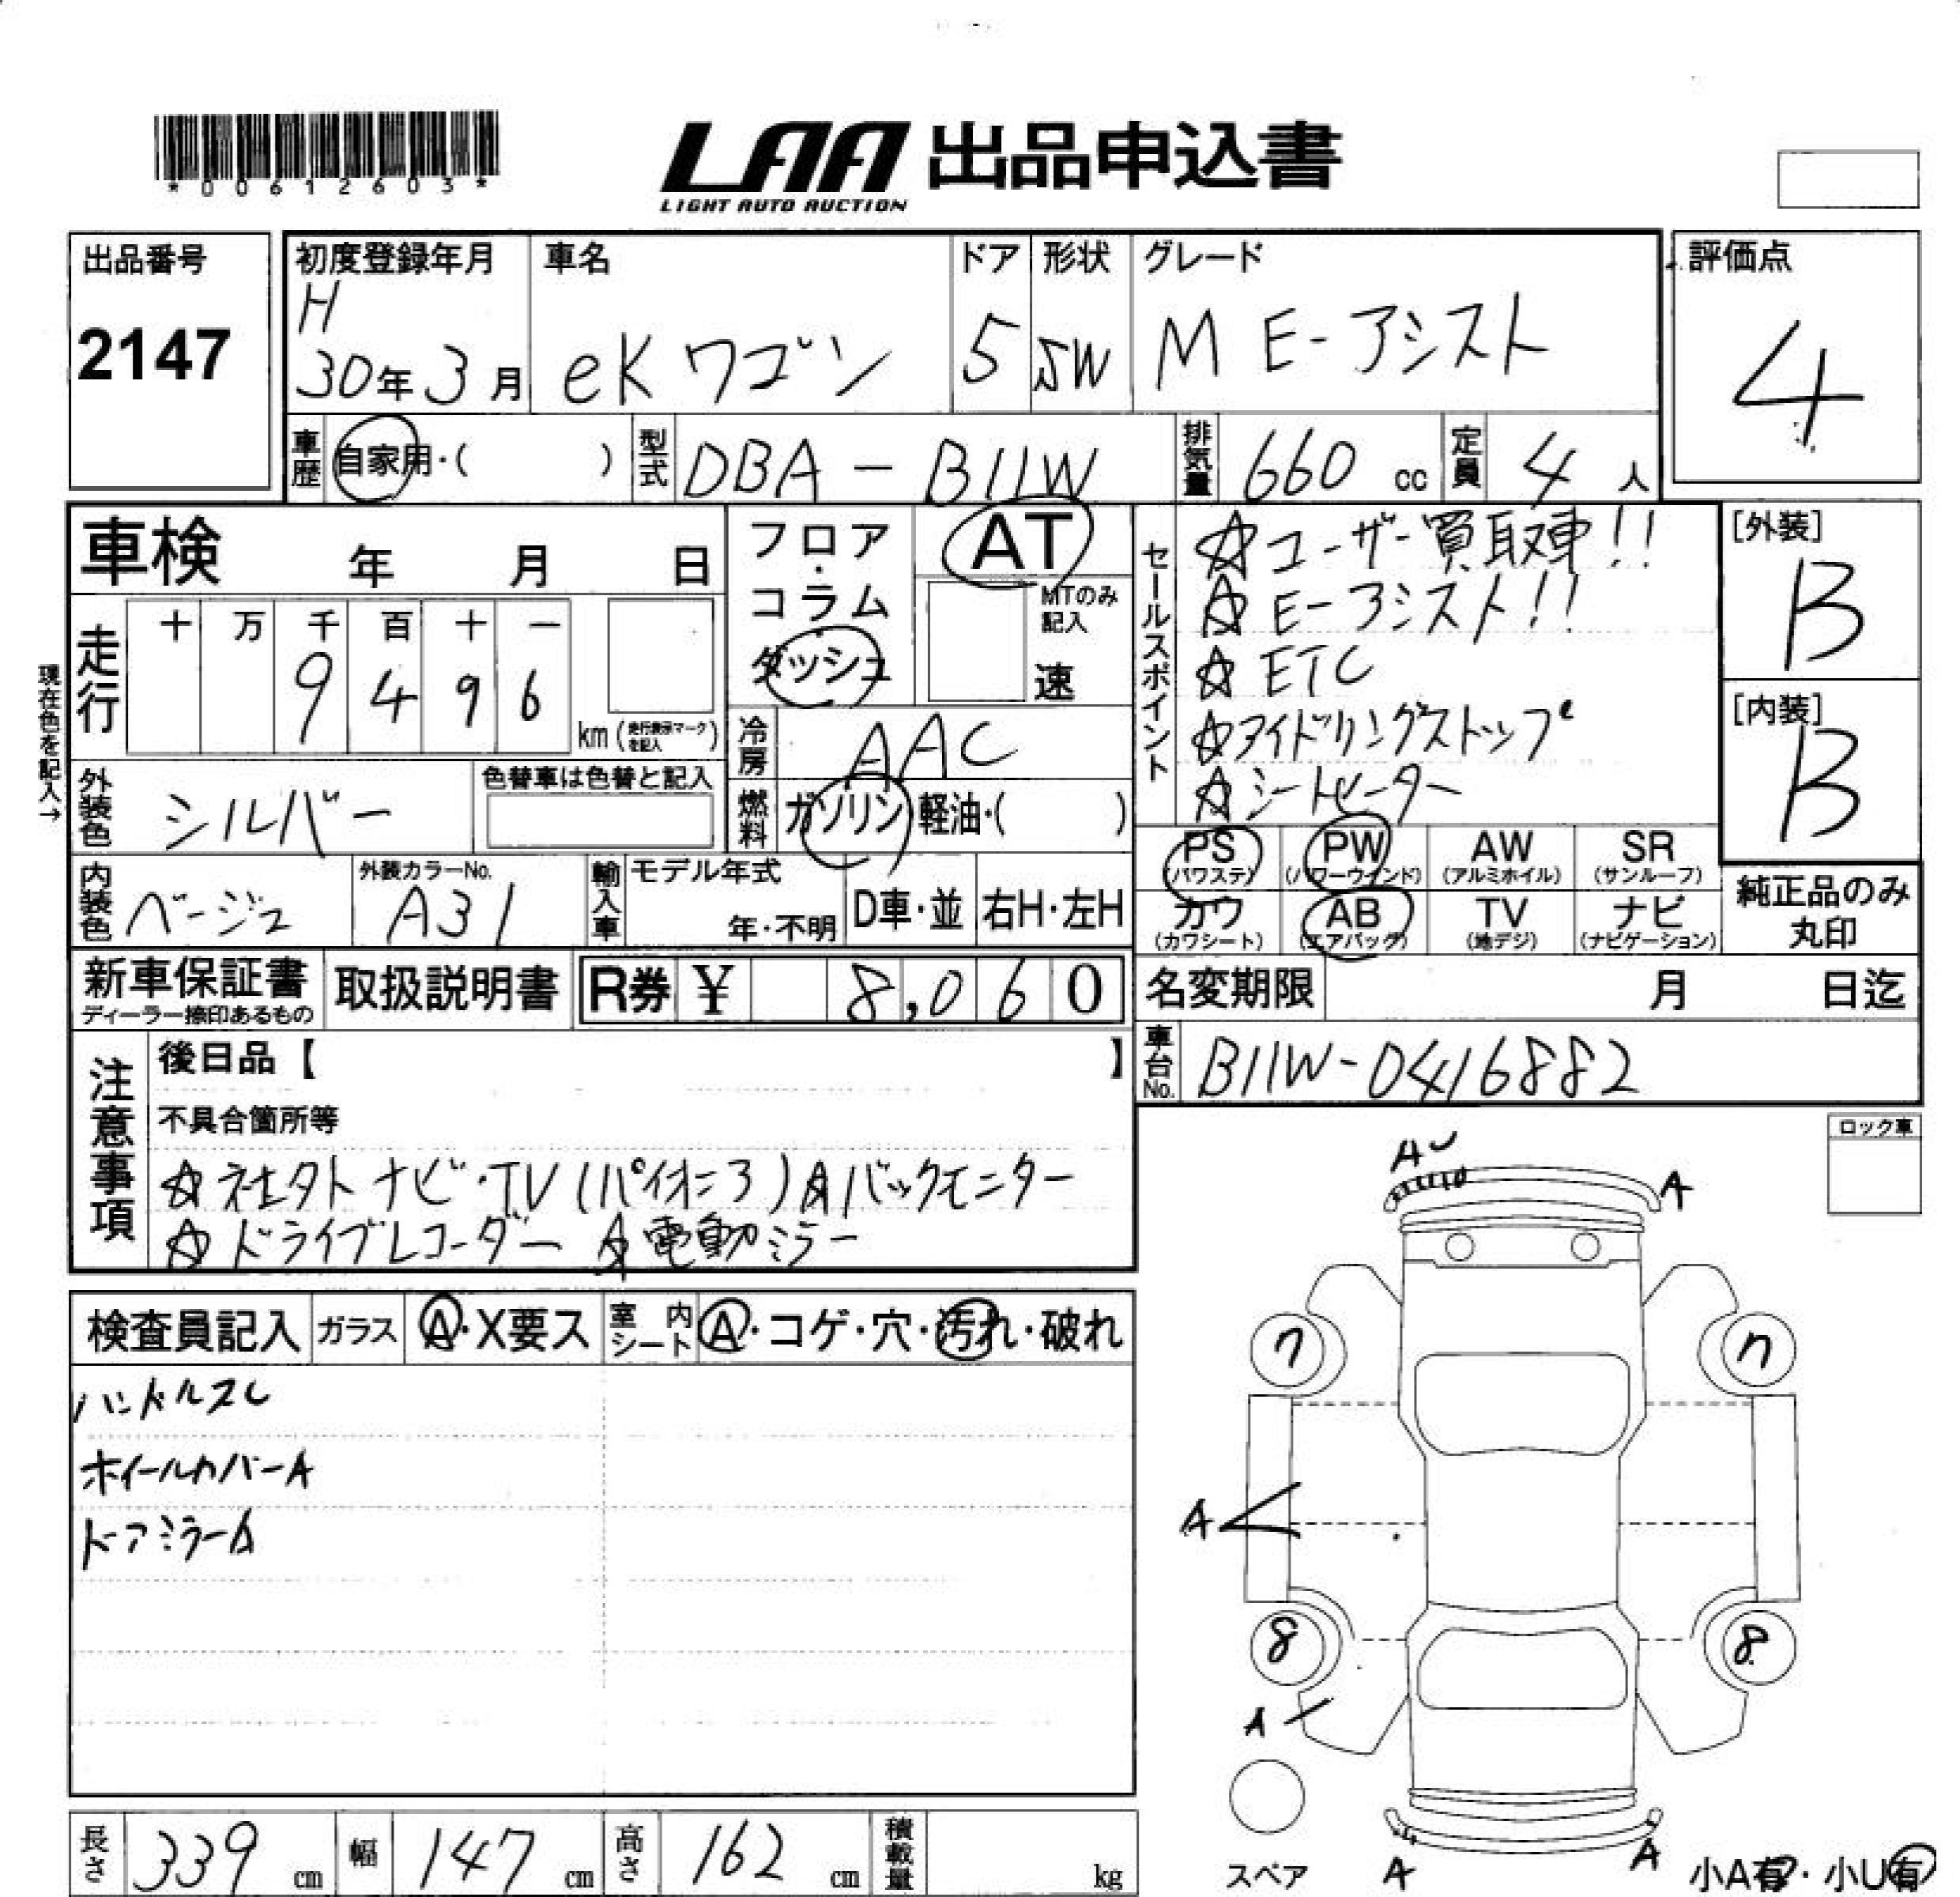 *00612603*
LAA 出品申込書
LIGHT AUTO AUCTION
出品番号
2147
初度登録年月
H
30年 3月
車名
eK ワゴン
ドア
5
形状
5W
グレード
M E-アシスト
評価点
4
車歴 自家用・( )
型式 DBA-B11W
排気量 660 cc
定員 4 人
車検 年 月 日
フロア・コラム・ダッシュ
AT
MTのみ記入
速
走行 十 万 千 百 十 一
9 4 9 6
km(走行表示マークを記入)
冷房 AAC
燃料 ガソリン 軽油・( )
現在色を記入→
外装色 シルバー
色替車は色替と記入
内装色 ベージュ
外装カラーNo.
A31
輸入車 モデル年式
年・不明
D車・並 右H・左H
セールスポイント
☆ユーザー買取車!!
☆E-アシスト!!
☆ETC
☆アイドリングストップ
☆シートヒーター
[外装]
B
[内装]
B
PS (パワステ) PW (パワーウインド) AW (アルミホイル) SR (サンルーフ)
カワ (カワシート) AB (エアバッグ) TV (地デジ) ナビ (ナビゲーション)
純正品のみ
丸印
新車保証書
ディーラー捺印あるもの
取扱説明書
R券 ¥ 8,060
名変期限 月 日迄
車台No. B11W-0416882
注意事項
後日品【 】
不具合箇所等
☆社外ナビ・TV(パイオニア)☆バックモニター
☆ドライブレコーダー ☆電動ミラー
ロック車
検査員記入 ガラス A・X要ス 室内シート A・コゲ・穴・汚れ・破れ
ハンドルスレ
ホイールカバーA
ドアミラーA
AU
A
7
7
A
8
8
A
スペア
A
A
小A有・小U有
長さ 339 cm
幅 147 cm
高さ 162 cm
積載量 kg